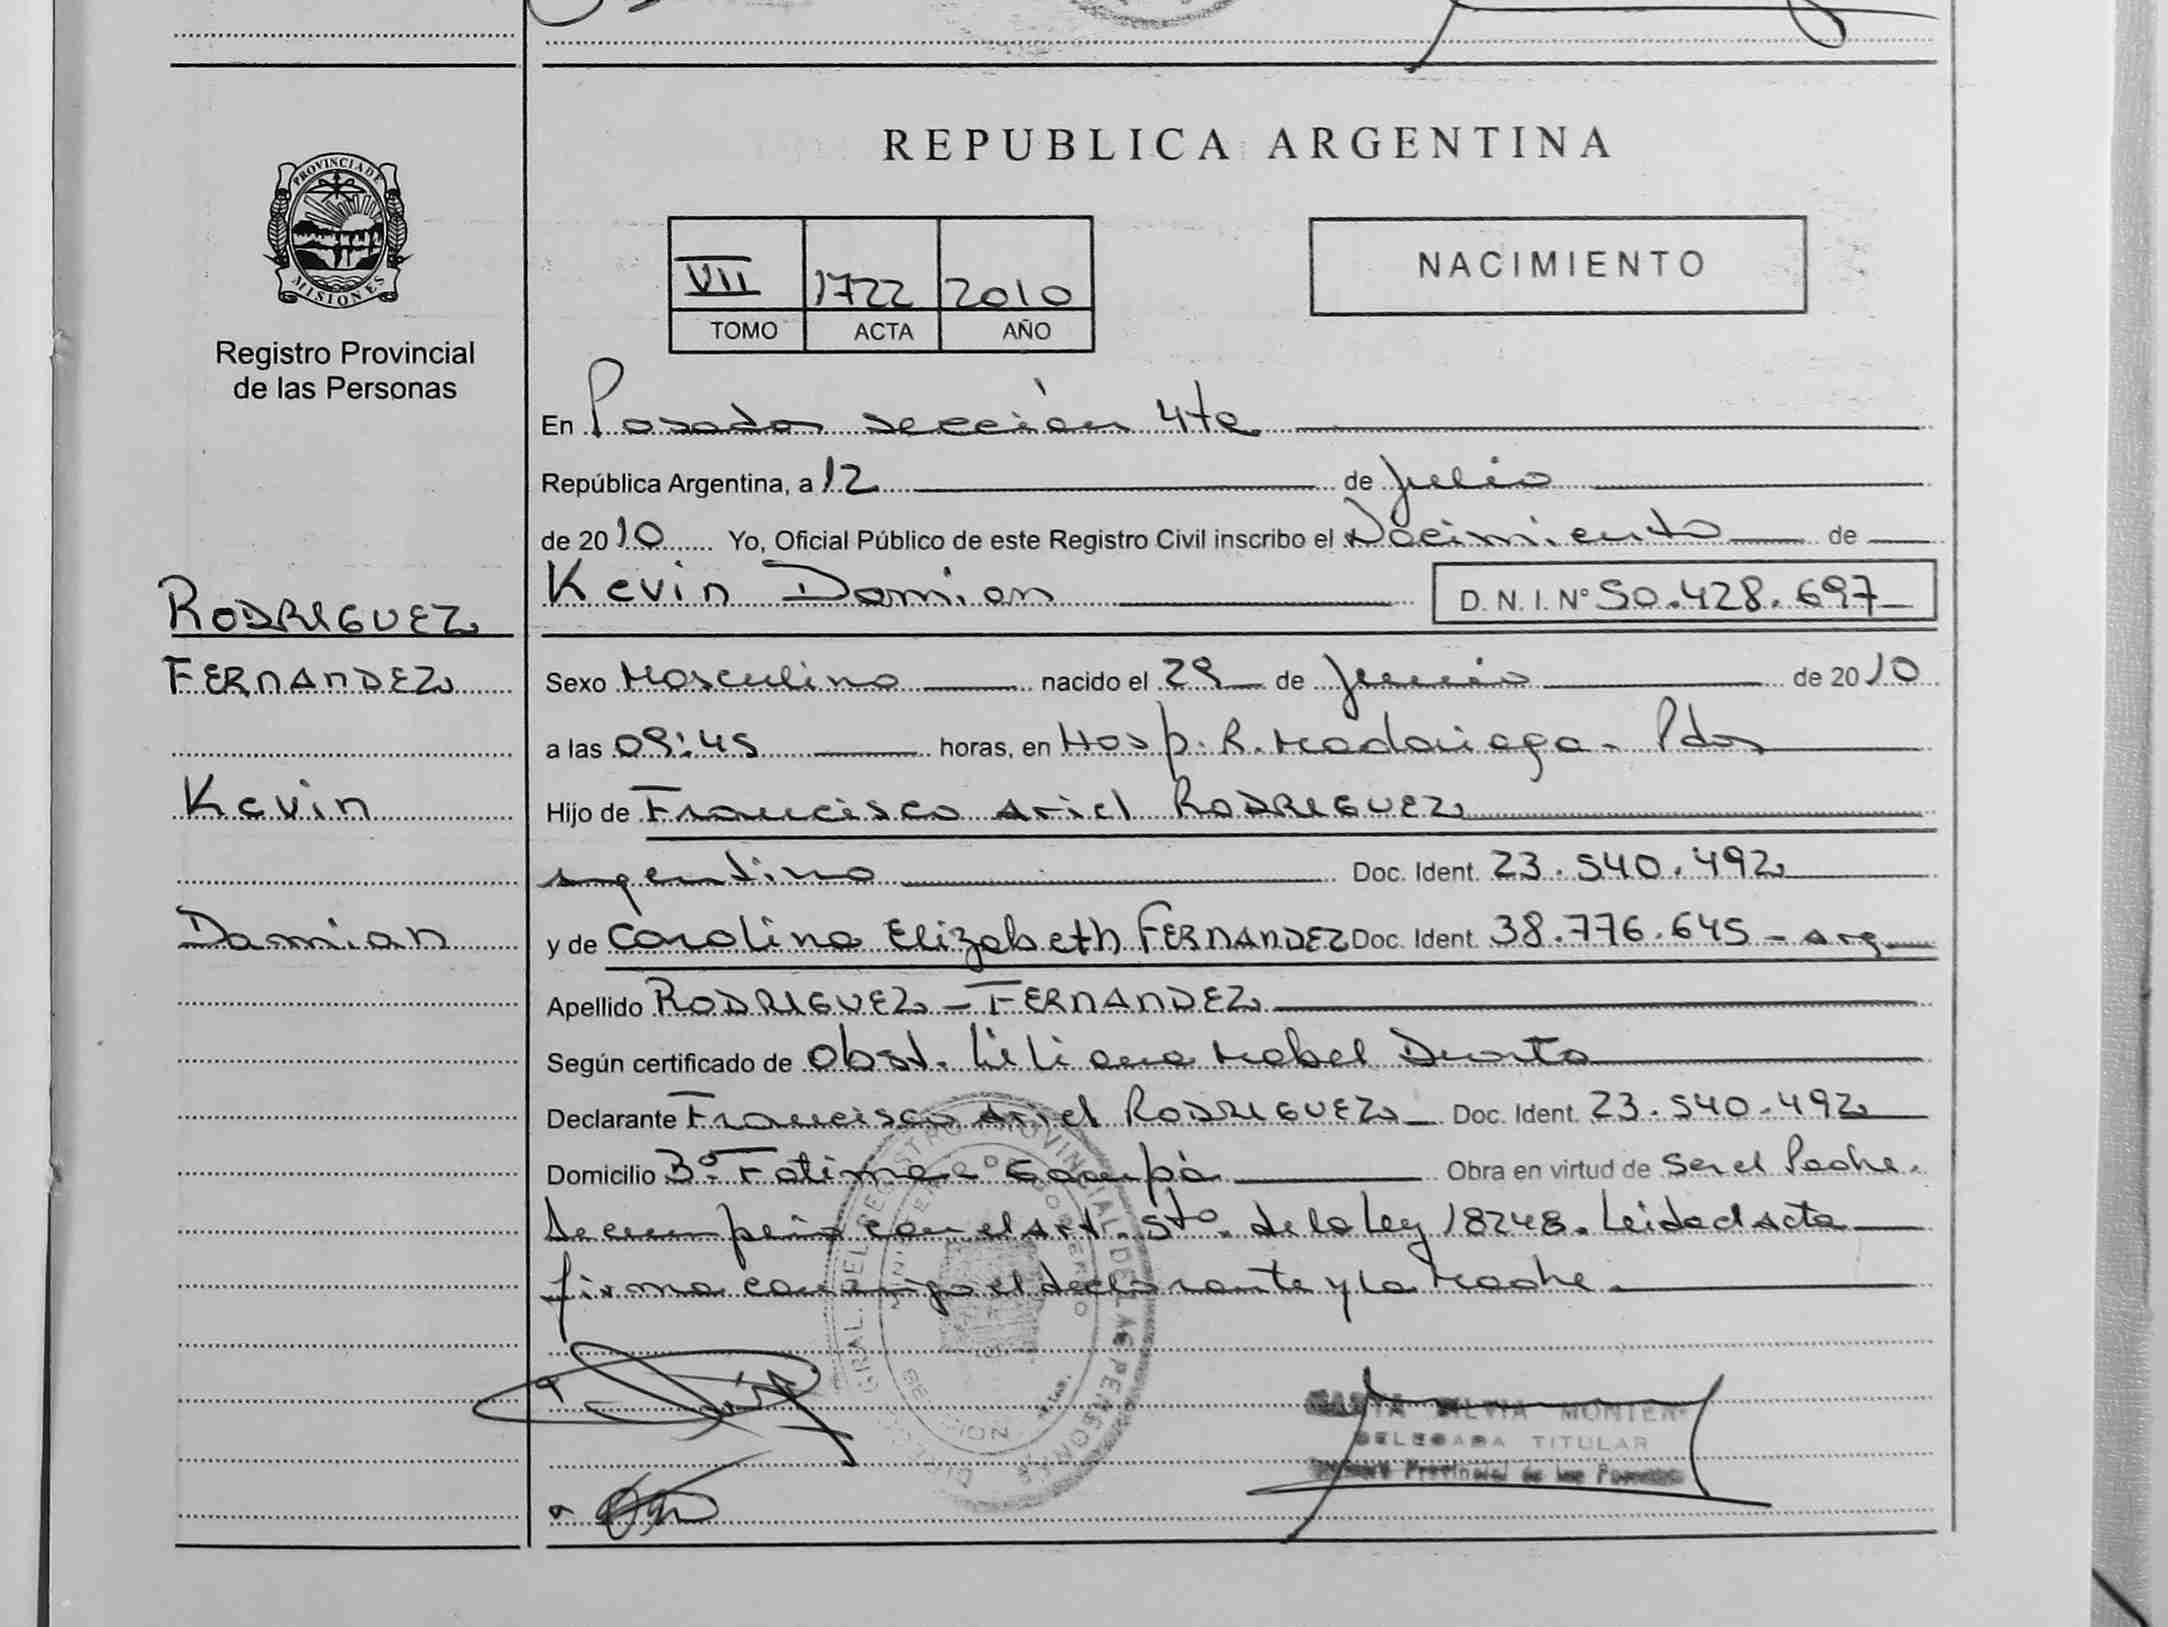 REPUBLICA ARGENTINA
PROVINCIA DE
MISIONES
Registro Provincial
de las Personas
VII 1722 2010
TOMO ACTA AÑO
NACIMIENTO
En Posadas sección 4ta
República Argentina, a 12 de julio
de 2010 Yo, Oficial Público de este Registro Civil inscribo el Nacimiento de
RODRIGUEZ
Kevin Damian D. N. I. Nº 50.428.697
FERNANDEZ
Sexo Masculino nacido el 29 de junio de 2010
a las 09:45 horas, en Hosp. R. Madariaga - Pdas
Kevin
Hijo de Francisco Ariel RODRIGUEZ
argentino Doc. Ident. 23.540.492
Damian
y de Carolina Elizabeth FERNANDEZ Doc. Ident. 38.776.645 - arg
Apellido RODRIGUEZ - FERNANDEZ
Según certificado de Obst. Liliana Mabel
Declarante Francisco Ariel RODRIGUEZ Doc. Ident. 23.540.492
Domicilio Bº Fatima - Garupá Obra en virtud de ser el Padre.
con el art. 5to. de la Ley 18248. Leida el Acta
firma conmigo el declarante y la Madre.
SILVIA
DELEGADA TITULAR
Provincial de las Personas